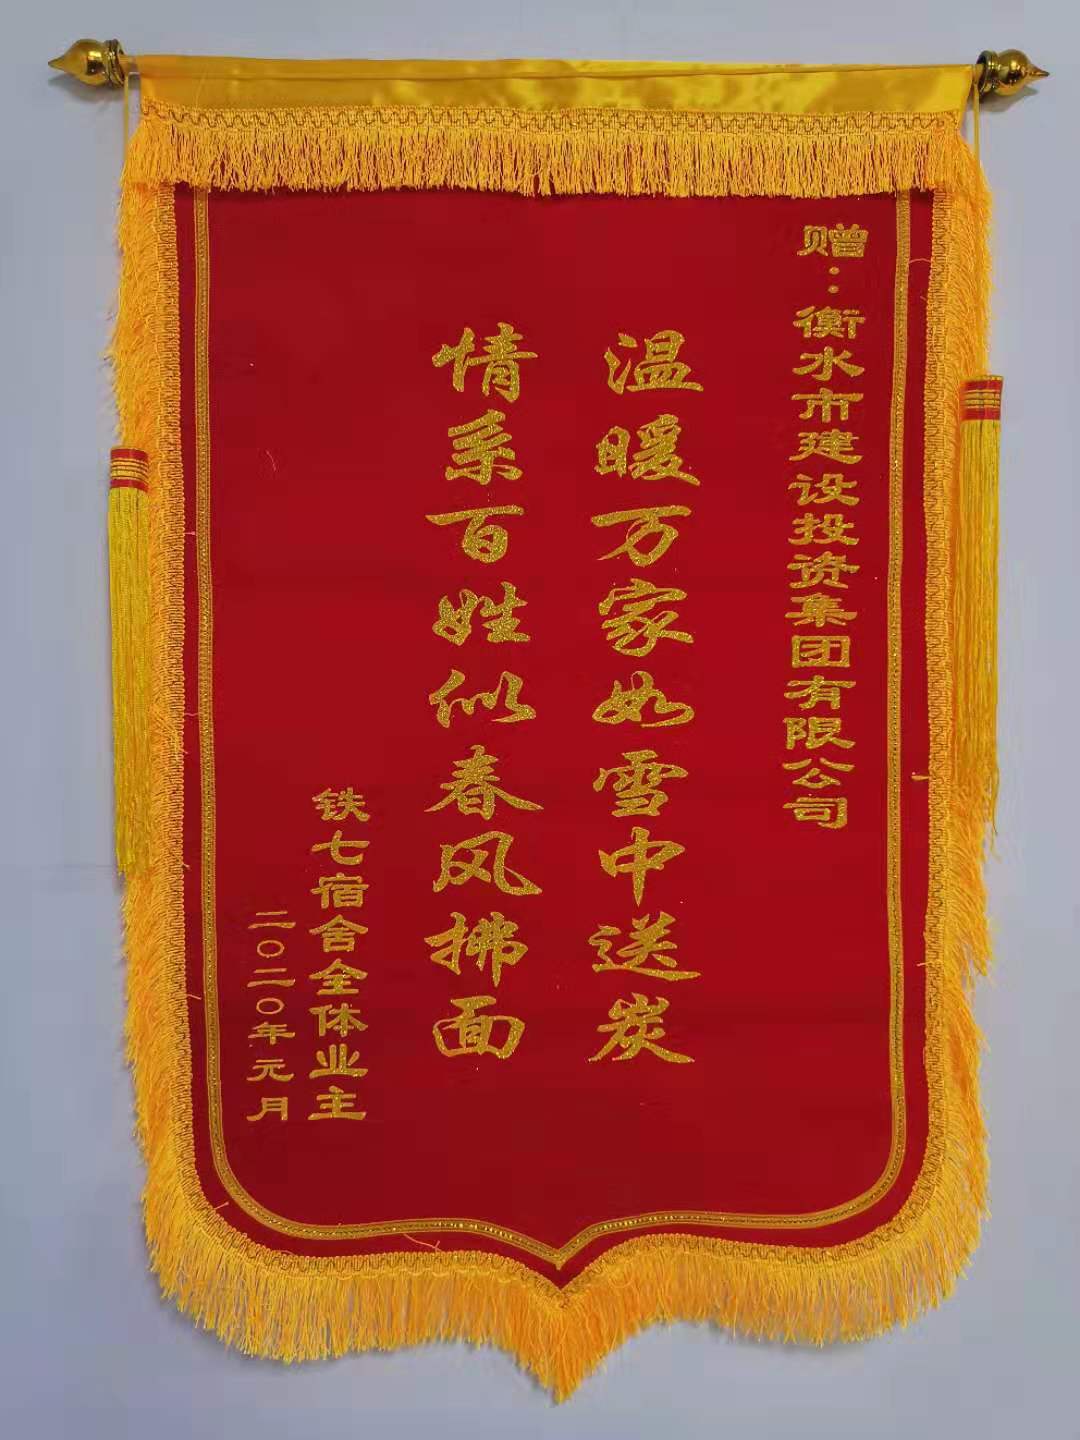 赠：衡水市建设投资集团有限公司
温暖万家如雪中送炭
情系百姓似春风拂面
铁七宿舍全体业主
二〇二〇年元月